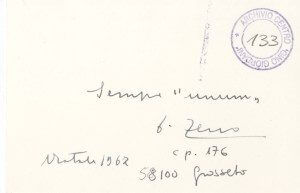 ARCHIVIO CENTRO
133
Sempre "unum"
d. Zeno
c p. 176
Natale 1962
58100 Grosseto